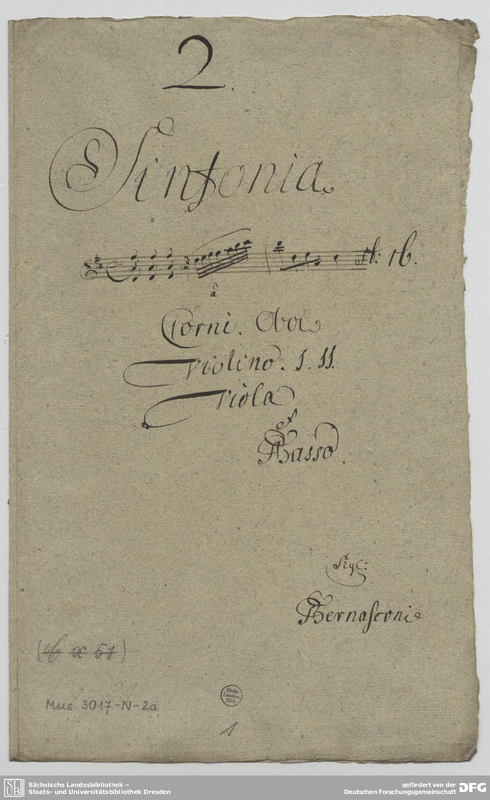 2.
Sinfonia
16.
à
Corni. Oboi
Violino. I. II.
Viola
et
Basso.
Sigl:
Bernasconi
Mus. 3017-N-2a
1
Sächsische Landesbibliothek –
Staats- und Universitätsbibliothek Dresden
gefördert von der
Deutschen Forschungsgemeinschaft DFG